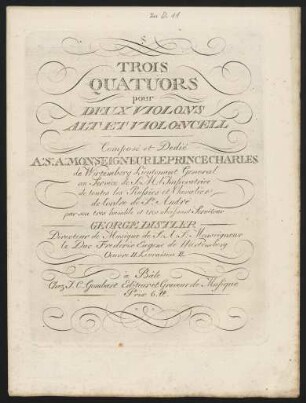 TROIS
QUATUORS
pour
DEUX VIOLONS
ALT ET VIOLONCELL
Composé et Dedié
A.S.A. MONSEIGNEUR LE PRINCE CHARLES
de Wirtemberg Lieutenant General
au Service de S. M. l'Imperatrice
de toutes les Russies et Chevalier
de l'ordre de St. André
par son tres humble et tres obeissant Serviteur
GEORGE DISTLER
Directeur de Musique de S. A. S. Monseigneur
le Duc Frederic Eugene de Wirtemberg
Oeuvre II. Livraison II.
à Bâle
Chez J. C. Gombart Editeur et Graveur de Musique
Prix